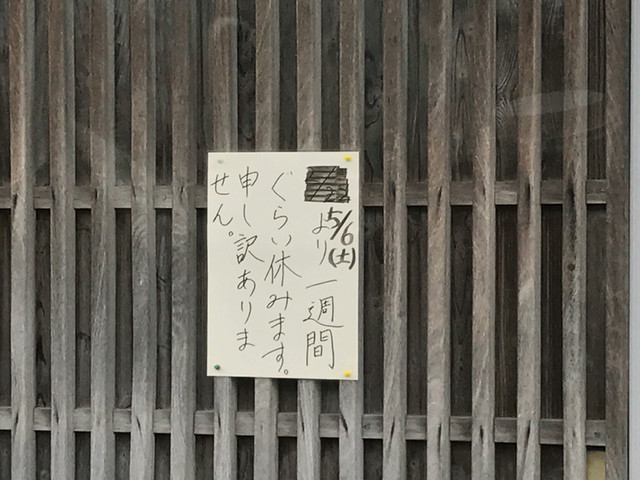 5/6(土)
より一週間
ぐらい休みます。
申し訳ありま
せん。